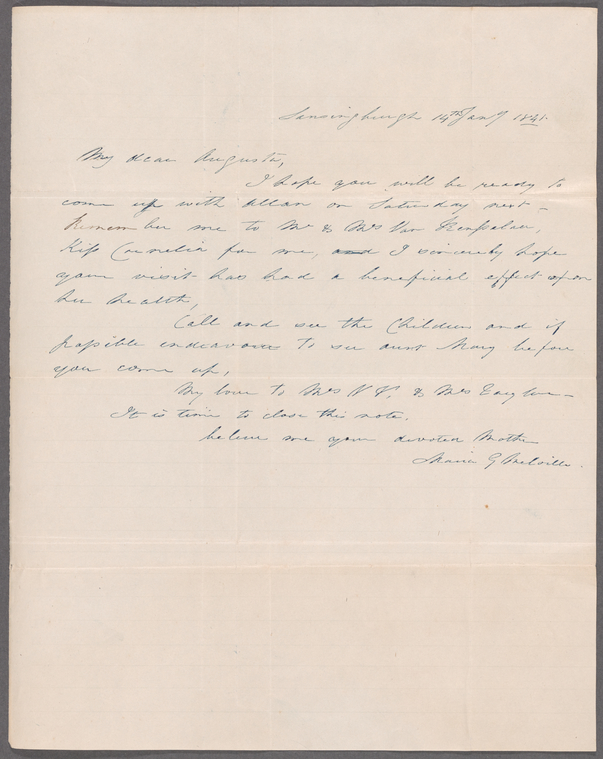 Lansingburgh 14th Jany 1841.
My dear Augusta,
I hope you will be ready to
come up with Allan on Saturday next—
Remember me to Mr & Mrs Van Renssalaer,
Kiss Cornelia for me, and I sincerely hope
your visit has had a beneficial effect upon
her health,
Call and see the Children and if
possible endeavour to see aunt Mary before
you come up,
My love to Mrs & Mrs
It is time to close this note.
believe me your devoted Mother
Maria G Melville.